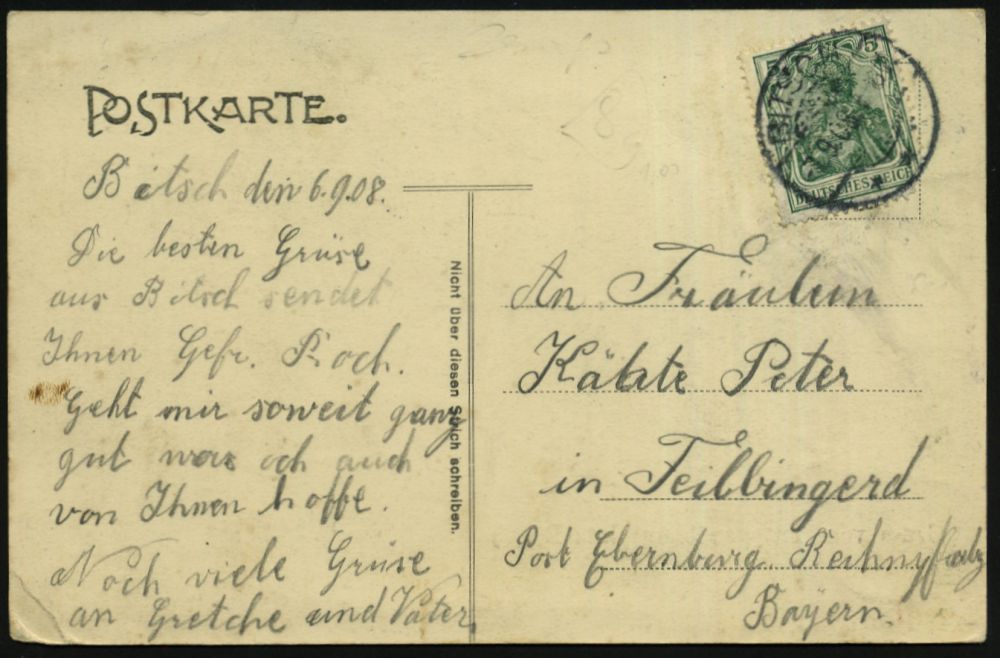 POSTKARTE.
Bitsch den 6.9.08.
Die besten Grüse
aus Bitsch sendet
Ihnen Gefr. Roch.
Geht mir soweit ganz
gut was och auch
von Ihnen hoffe.
Noch viele Grüse
an Gretche und Vater
Nicht über diesen Strich schreiben.
5 5
DEUTSCHES REICH
BITSCH
An Fräulein
Käthe Peter
in Feilbingerd
Post Ebernburg Reihnpfalz
Bayern.